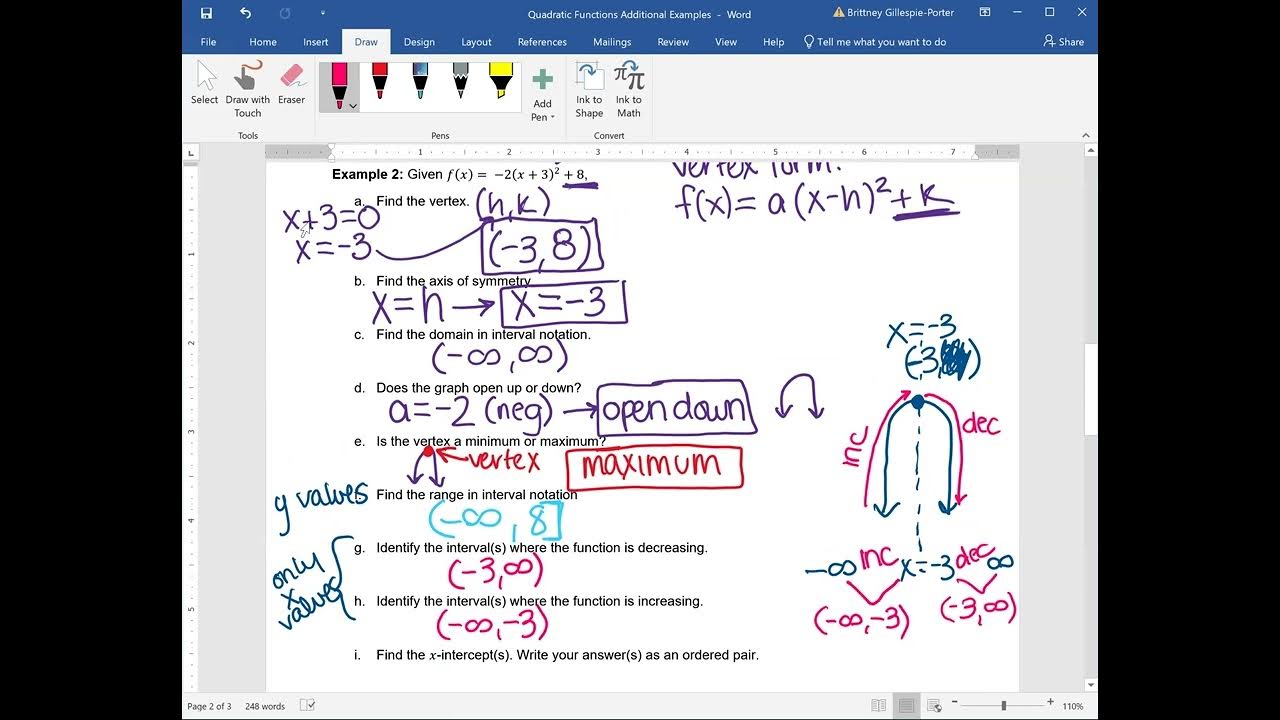 Quadratic Functions Additional Examples - Word
Brittney Gillespie-Porter
File Home Insert Draw Design Layout References Mailings Review View Help Tell me what you want to do Share
Select
Draw with Touch
Eraser
Add Pen
Ink to Shape
Ink to Math
Tools Pens Convert
1 2 3 4 5 6 7
vertex form:
Example 2: Given f(x) = −2(x + 3)² + 8,
f(x) = a(x-h)² + k
a. Find the vertex. (h,k)
x+3=0
x=-3
(-3,8)
b. Find the axis of symmetry
x=h → x=-3
c. Find the domain in interval notation.
(-∞,∞)
d. Does the graph open up or down?
a=-2 (neg) → open down
e. Is the vertex a minimum or maximum?
vertex maximum
y values
f. Find the range in interval notation
(-∞, 8]
only x values
g. Identify the interval(s) where the function is decreasing.
(-3,∞)
h. Identify the interval(s) where the function is increasing.
(-∞,-3)
i. Find the x-intercept(s). Write your answer(s) as an ordered pair.
x=-3
(-3, )
inc dec
-∞ inc x=-3 dec ∞
(-∞,-3) (-3,∞)
1
4
5
Page 2 of 3 248 words
110%